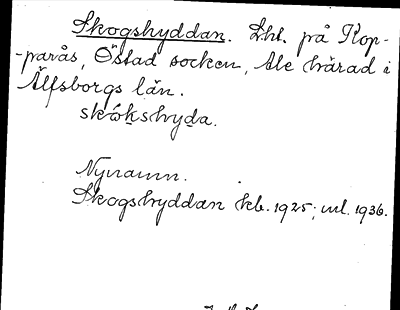 Skogshyddan. Lht. på Kop-
-parås, Östad socken, Ale härad i
Älfsborgs län.
skó̱ḵshyda.
Nynamn.
Skogshyddan kb. 1925; ml. 1936.